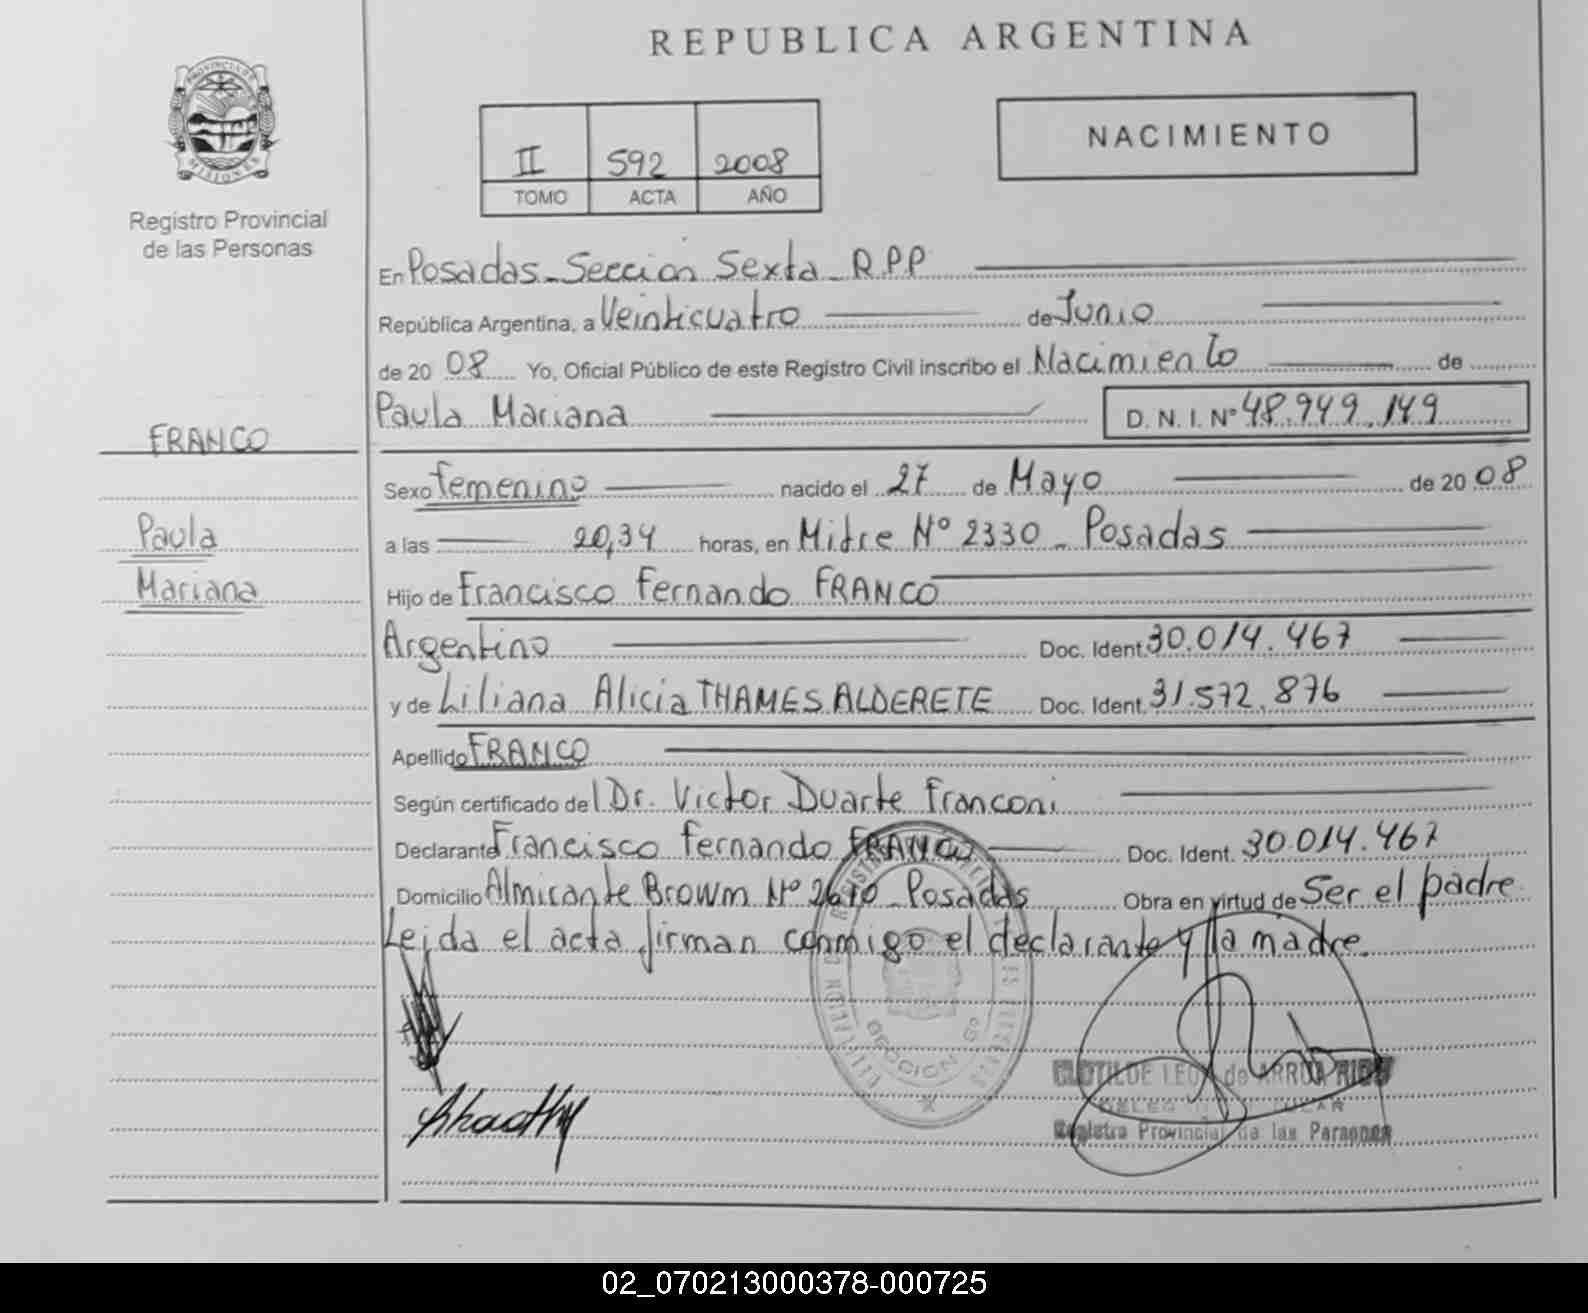 REPUBLICA ARGENTINA
PROVINCIA DE
MISIONES
Registro Provincial
de las Personas
II 592 2008
TOMO ACTA AÑO
NACIMIENTO
En Posadas - Sección Sexta - R.P.P.
República Argentina, a Veinticuatro de Junio
de 20 08 Yo, Oficial Público de este Registro Civil inscribo el Nacimiento de
Paula Mariana D. N. I. N° 48.949.149
FRANCO
Sexo femenino nacido el 27 de Mayo de 20 08
Paula
a las 20,34 horas, en Mitre N° 2330 - Posadas
Mariana
Hijo de Francisco Fernando FRANCO
Argentino Doc. Ident. 30.014.467
y de Liliana Alicia THAMES ALDERETE Doc. Ident. 31.572.876
Apellido FRANCO
Según certificado del Dr. Victor Duarte Franconi
Declarante Francisco Fernando FRANCO Doc. Ident. 30.014.467
Domicilio Almirante Browm N° 2610 - Posadas Obra en virtud de Ser el padre.
Leida el acta firman conmigo el declarante y la madre.
SECCION 6°
CLOTILDE de ARRUA
Registro Provincial de las Personas
02_070213000378-000725